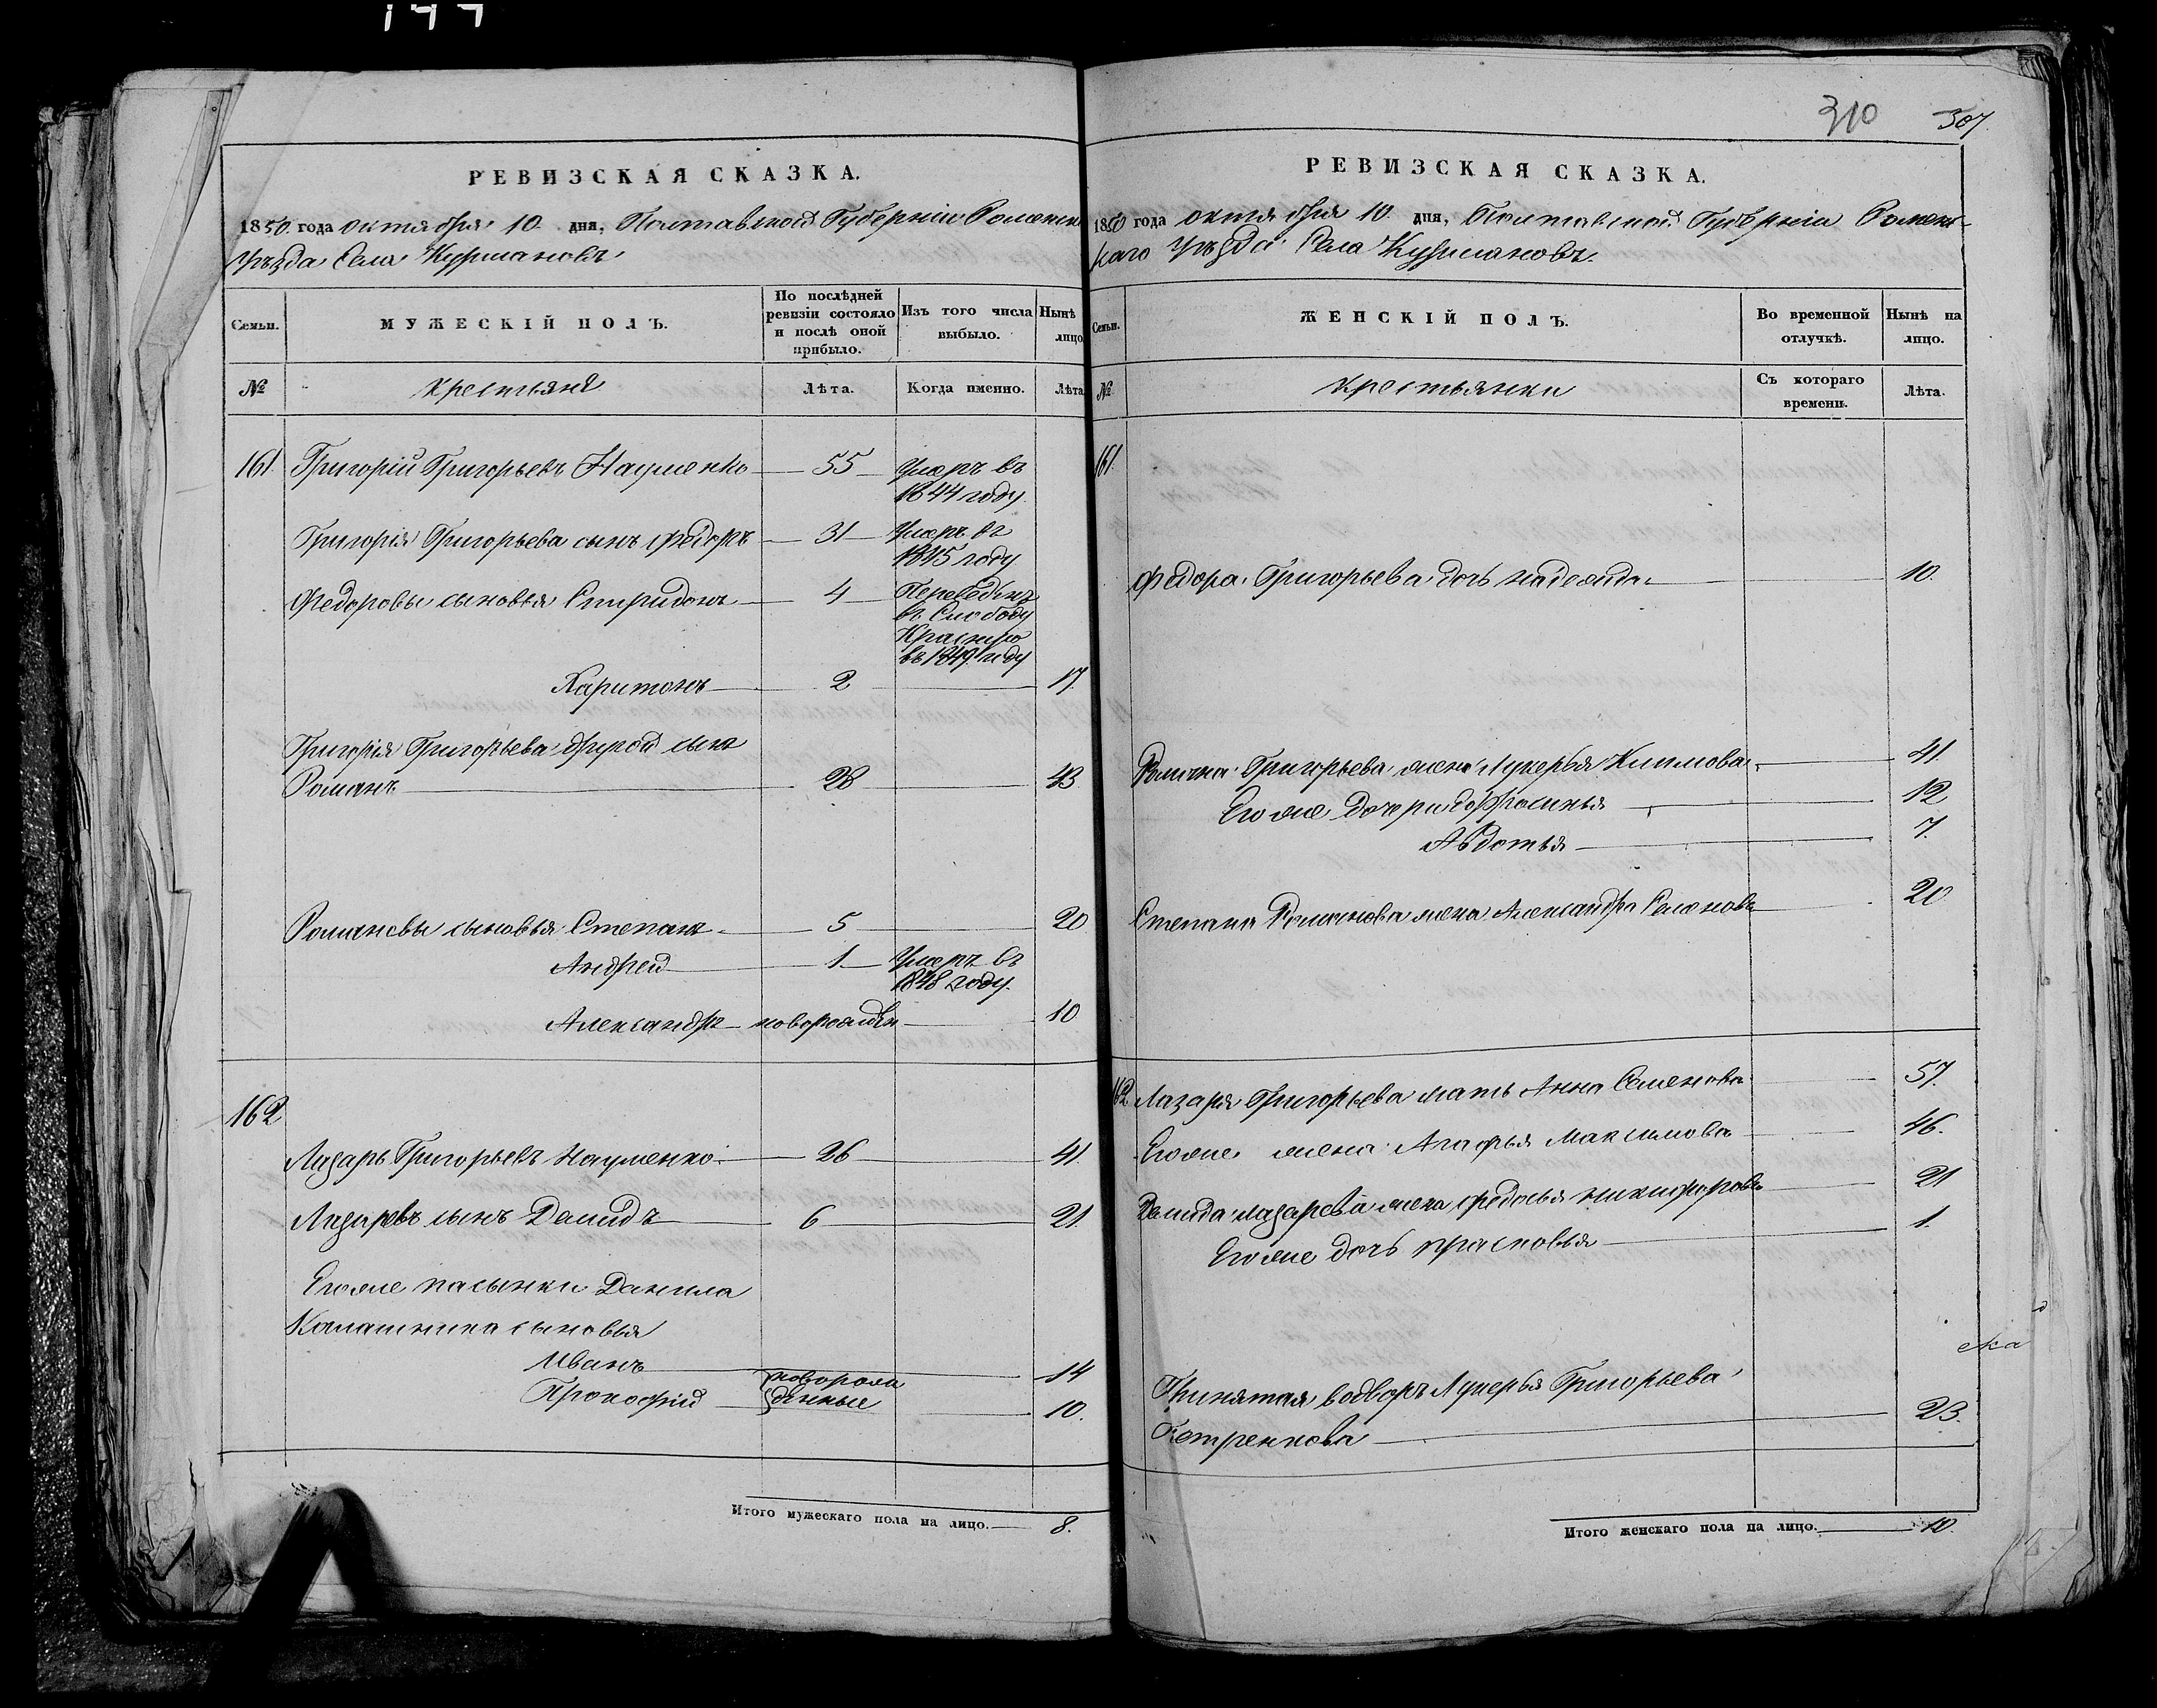 310 307.
РЕВИЗСКАЯ СКАЗКА.
1850 года октября 10 дня, Полтавской Губерніи Роменск
Уѣзда Села Курмановъ
Семьи.
МУЖЕСКІЙ ПОЛЪ.
По послѣдней ревизіи состояло и послѣ оной прибыло.
Изъ того числа выбыло.
Нынѣ лицо
№
Крестьяне
Лѣта.
Когда именно.
Лѣта
161 Григорій Григорьевъ Науменко 55 Умеръ въ
1844 году.
Григорія Григорьева сынъ Федоръ 31 Умеръ въ
1845 году
Федоровы сыновья Спиридонъ 4 Переведенъ
въ Слободу
Красную
въ 1849 году
Харитонъ 2 17.
Григорія Григорьева другой сынъ
Романъ 28 43
Романовы сыновья Степанъ 5 20
Андрей 1 Умеръ въ
1848 году.
Александръ новорожден 10
162
Лазарь Григорьевъ Науменко 26 41
Лазаревъ сынъ Демидъ 6 21.
Его же пасынки Данила
Калашника сыновья
Иванъ новорож 14
Прокофій денные 10.
Итого мужескаго пола на лицо. 8.
РЕВИЗСКАЯ СКАЗКА.
1850 года октября 10 дня, Полтавской Губерніи Ромен-
скаго Уѣзда Села Курмановъ.
Семьи.
ЖЕНСКІЙ ПОЛЪ.
Во временной отлучкѣ.
Нынѣ на лицо.
№
Крестьянки
Съ котораго времени.
Лѣта.
161.
Федора Григорьева дочь Надежда 10.
Романа Григорьева жена Лукерья Климова 41.
Его же дочери Ефросинья 12
Авдотья 7.
Степана Романова жена Александра Семенова 20
162 Лазаря Григорьева мать Анна Семенова 57.
Его же жена Агафья Максимова 46.
Демида Лазарева жена Федосья Никифорова 21
Его же дочь Прасковья 1.
Принятая водворъ Лукерья Григорьева
Петренкова 23.
Итого женскаго пола на лицо. 10.